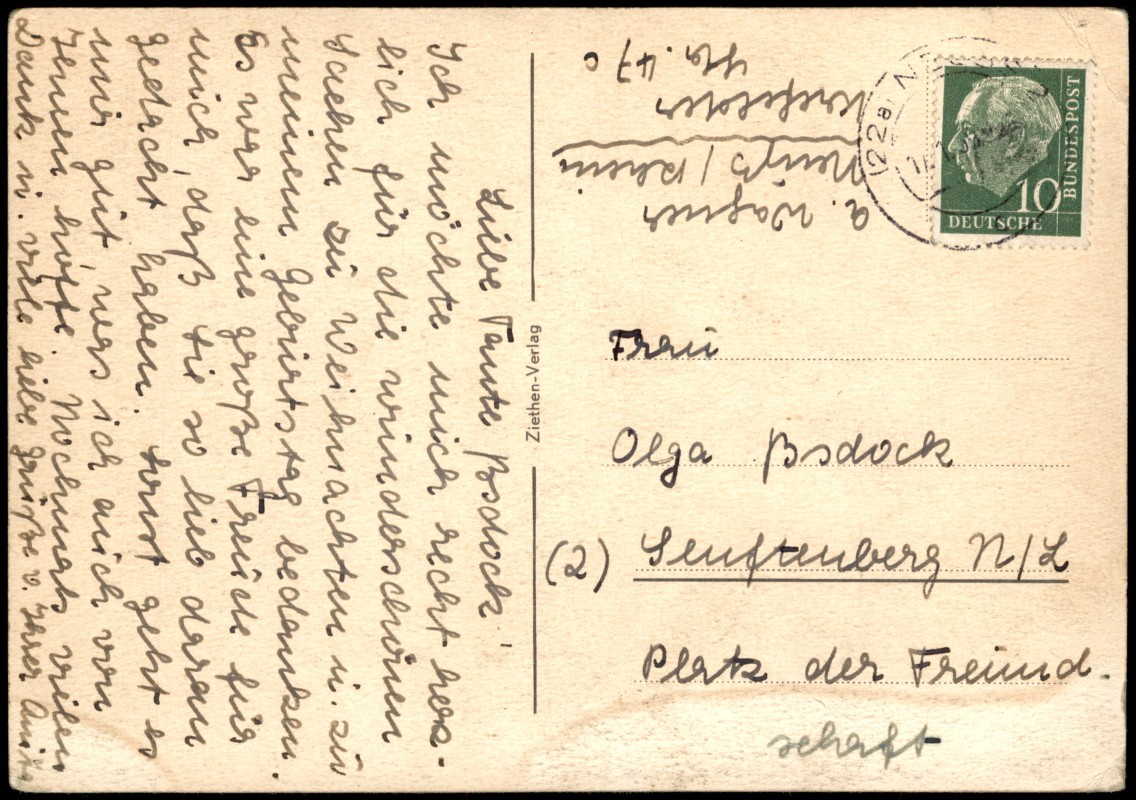 Liebe Tante Bsdock!
Ich möchte mich recht herz-
lich für die wunderschönen
Sachen zu Weihnachten u. zu
meinem Geburtstag bedanken.
Es war eine große Freude für
mich, daß Sie so lieb daran
gedacht haben. Sonst geht es
mir gut, was ich auch von
Ihnen hoffe. Nochmals vielen
Dank u. viele liebe Grüße v. Ihrer Anita
Ziethen-Verlag
A. Wagner
Neuß/Rhein
Krefelder
Str. 470
(22a) NEUSS
10
DEUTSCHE
BUNDESPOST
Frau
Olga Bsdock
(2) Senftenberg N/L
Platz der Freund-
schaft